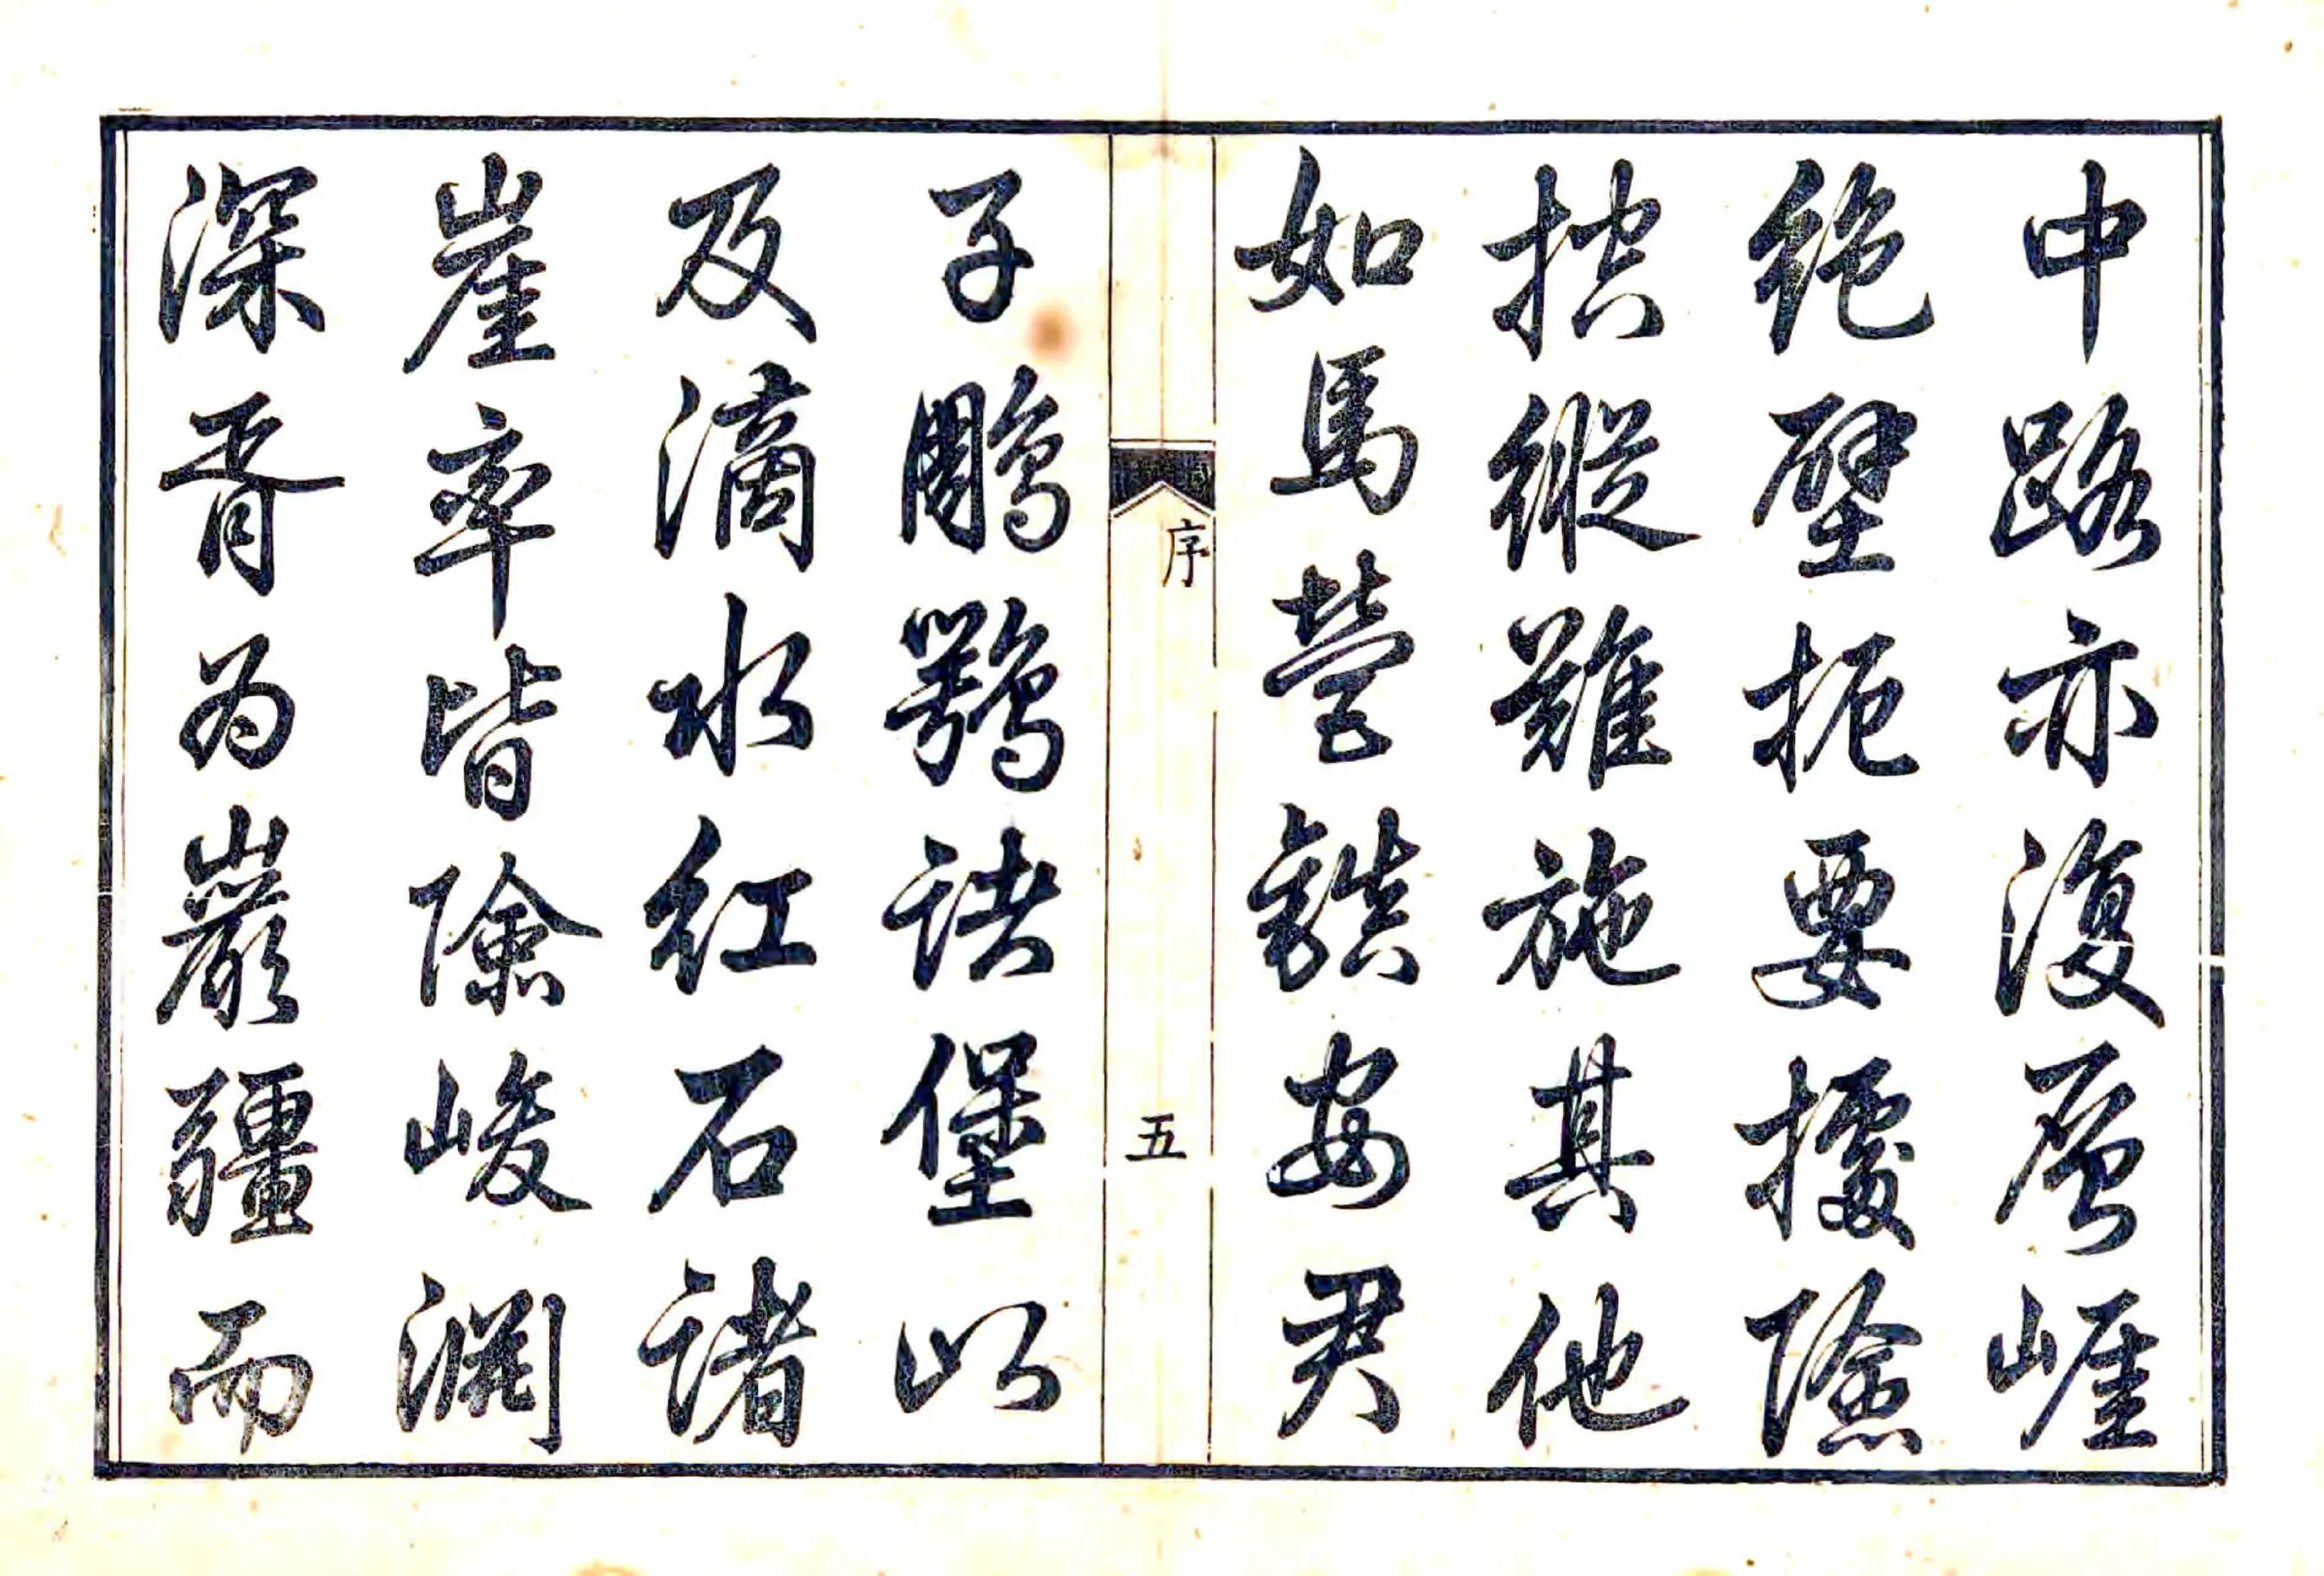 中路亦復層崕
絶壁扼要據險
控縱難施其他
如馬營鎮安君
序
五
子鵰鶚諸堡以
及滴水紅石諸
崖率皆險峻淵
深胥為巖疆而